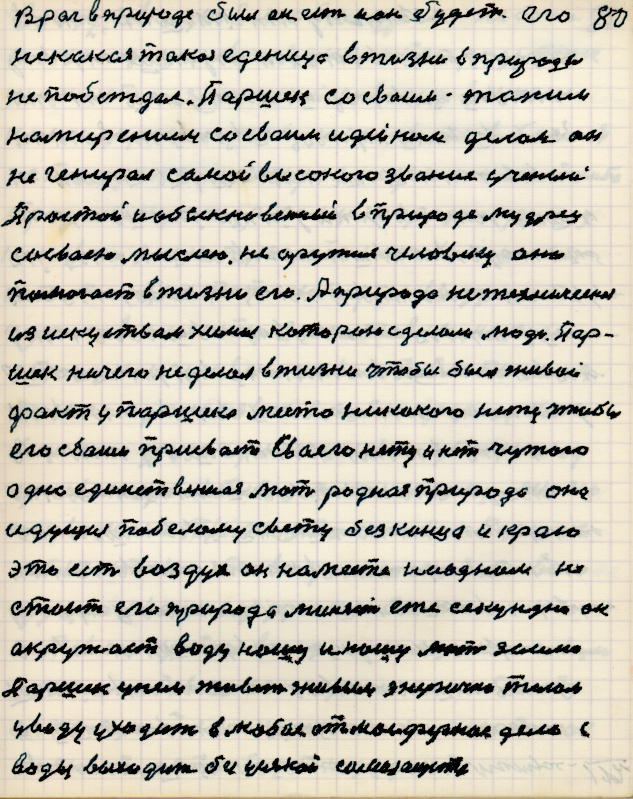 Враг в природе был он ест и он будет. Его 80
некакая такая еденица в жизни в природы
не победждал. Паршек со своим таким
намирением со своим идейном делом он
не генирал самой высокого звания ученый
Простой и обыкновенный в природе мудрец
со своею мыслею, не оружия человеку они
помогают в жизни его. А природа не техническая
из искуством химия которою сделали люди. Пар-
шек ничего не делал в жизни чтобы был живой
факт у паршека место никакого нету чтобы
его своим присвоет Своего нету и нет чужого
одно единственная мать родная природа она
идущия по белому свету без конца и краю
это ест воздух он на месте ни водном не
стоит его природа миняет еже секундна он
окружает воду нашу и нашу мать землю
Паршек унем живет живым энергично телом
уводу уходит в любое отмосферное дело с
воды выходит бе усякой